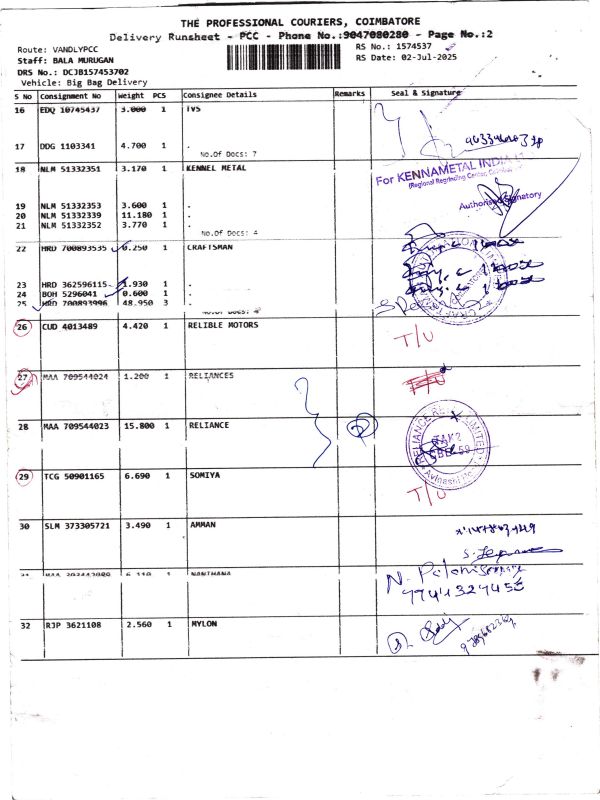 THE PROFESSIONAL COURIERS, COIMBATORE
Delivery Runsheet - PCC - Phone No.:9047080280 - Page No.:2
Route: VANDLYPCC
RS No.: 1574537
Staff: BALA MURUGAN
RS Date: 02-Jul-2025
DRS No.: DCJB157453702
Vehicle: Big Bag Delivery
S No Consignment No Weight PCS Consignee Details Remarks Seal & Signature
16 EDQ 10745437 3.000 1 TVS
17 DDG 1103341 4.700 1 .
No.Of Docs: 7
18 NLM 51332351 3.170 1 KENNEL METAL
For KENNAMETAL INDIA
(Regional Regrinding Center,
Authorised Signatory
19 NLM 51332353 3.600 1 .
20 NLM 51332339 11.180 1 .
21 NLM 51332352 3.770 1 .
No.Of Docs: 4
22 HRD 700893535 0.250 1 CRAFTSMAN
23 HRD 362596115 1.930 1 .
24 BOH 5296041 0.600 1 .
25 HRD 700893996 48.950 3
26 CUD 4013489 4.420 1 RELIBLE MOTORS
T/U
27 MAA 709544024 1.200 1 RELIANCES
T/U
28 MAA 709544023 15.800 1 RELIANCE
29 TCG 50901165 6.690 1 SOMIYA
T/U
30 SLM 373305721 3.490 1 AMMAN
NANTHANA
32 RJP 3621108 2.560 1 MYLON